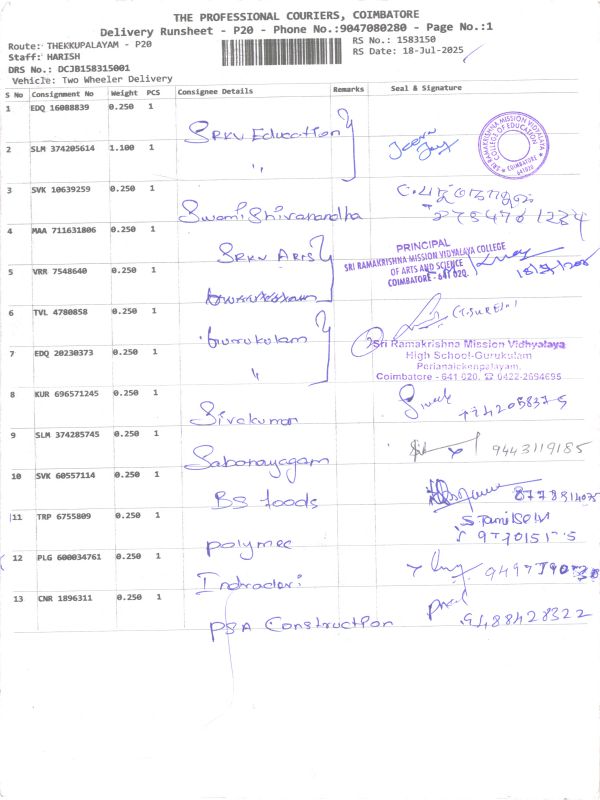 THE PROFESSIONAL COURIERS, COIMBATORE
Delivery Runsheet - P20 - Phone No.:9047080280 - Page No.:1
Route: THEKKUPALAYAM - P20
RS No.: 1583150
Staff: HARISH
RS Date: 18-Jul-2025
DRS No.: DCJB158315001
Vehicle: Two Wheeler Delivery
S No Consignment No Weight PCS Consignee Details Remarks Seal & Signature
1 EDQ 16088839 0.250 1
SRKV Education
SRI RAMAKRISHNA MISSION VIDYALAYA
COLLEGE OF EDUCATION
COIMBATORE
641020
2 SLM 374205614 1.100 1
"
3 SVK 10639259 0.250 1
Swami Shivanandha
4 MAA 711631806 0.250 1
SRKV Arts
PRINCIPAL
SRI RAMAKRISHNA MISSION VIDYALAYA COLLEGE
OF ARTS AND SCIENCE
COIMBATORE - 641 020.
5 VRR 7548640 0.250 1
6 TVL 4780858 0.250 1
Gurukulam
Sri Ramakrishna Mission Vidhyalaya
High School-Gurukulam
Perianaickenpalayam,
Coimbatore - 641 020. ☎ 0422-2694695
7 EDQ 20230373 0.250 1
"
8 KUR 696571245 0.250 1
Sivakumar
9 SLM 374285745 0.250 1
Sabanayagam 9443119185
10 SVK 60557114 0.250 1
BS foods
11 TRP 6755809 0.250 1
S Tamilselvi
polymec
12 PLG 600034761 0.250 1
Indradevi
13 CNR 1896311 0.250 1
PSA Construction 9488428322